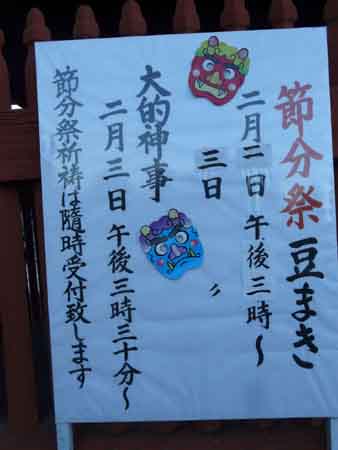 節分祭 豆まき
二月二日 午後三時〜
三日 〃
大的神事
二月三日 午後三時三十分〜
節分祭祈祷は随時受付致します